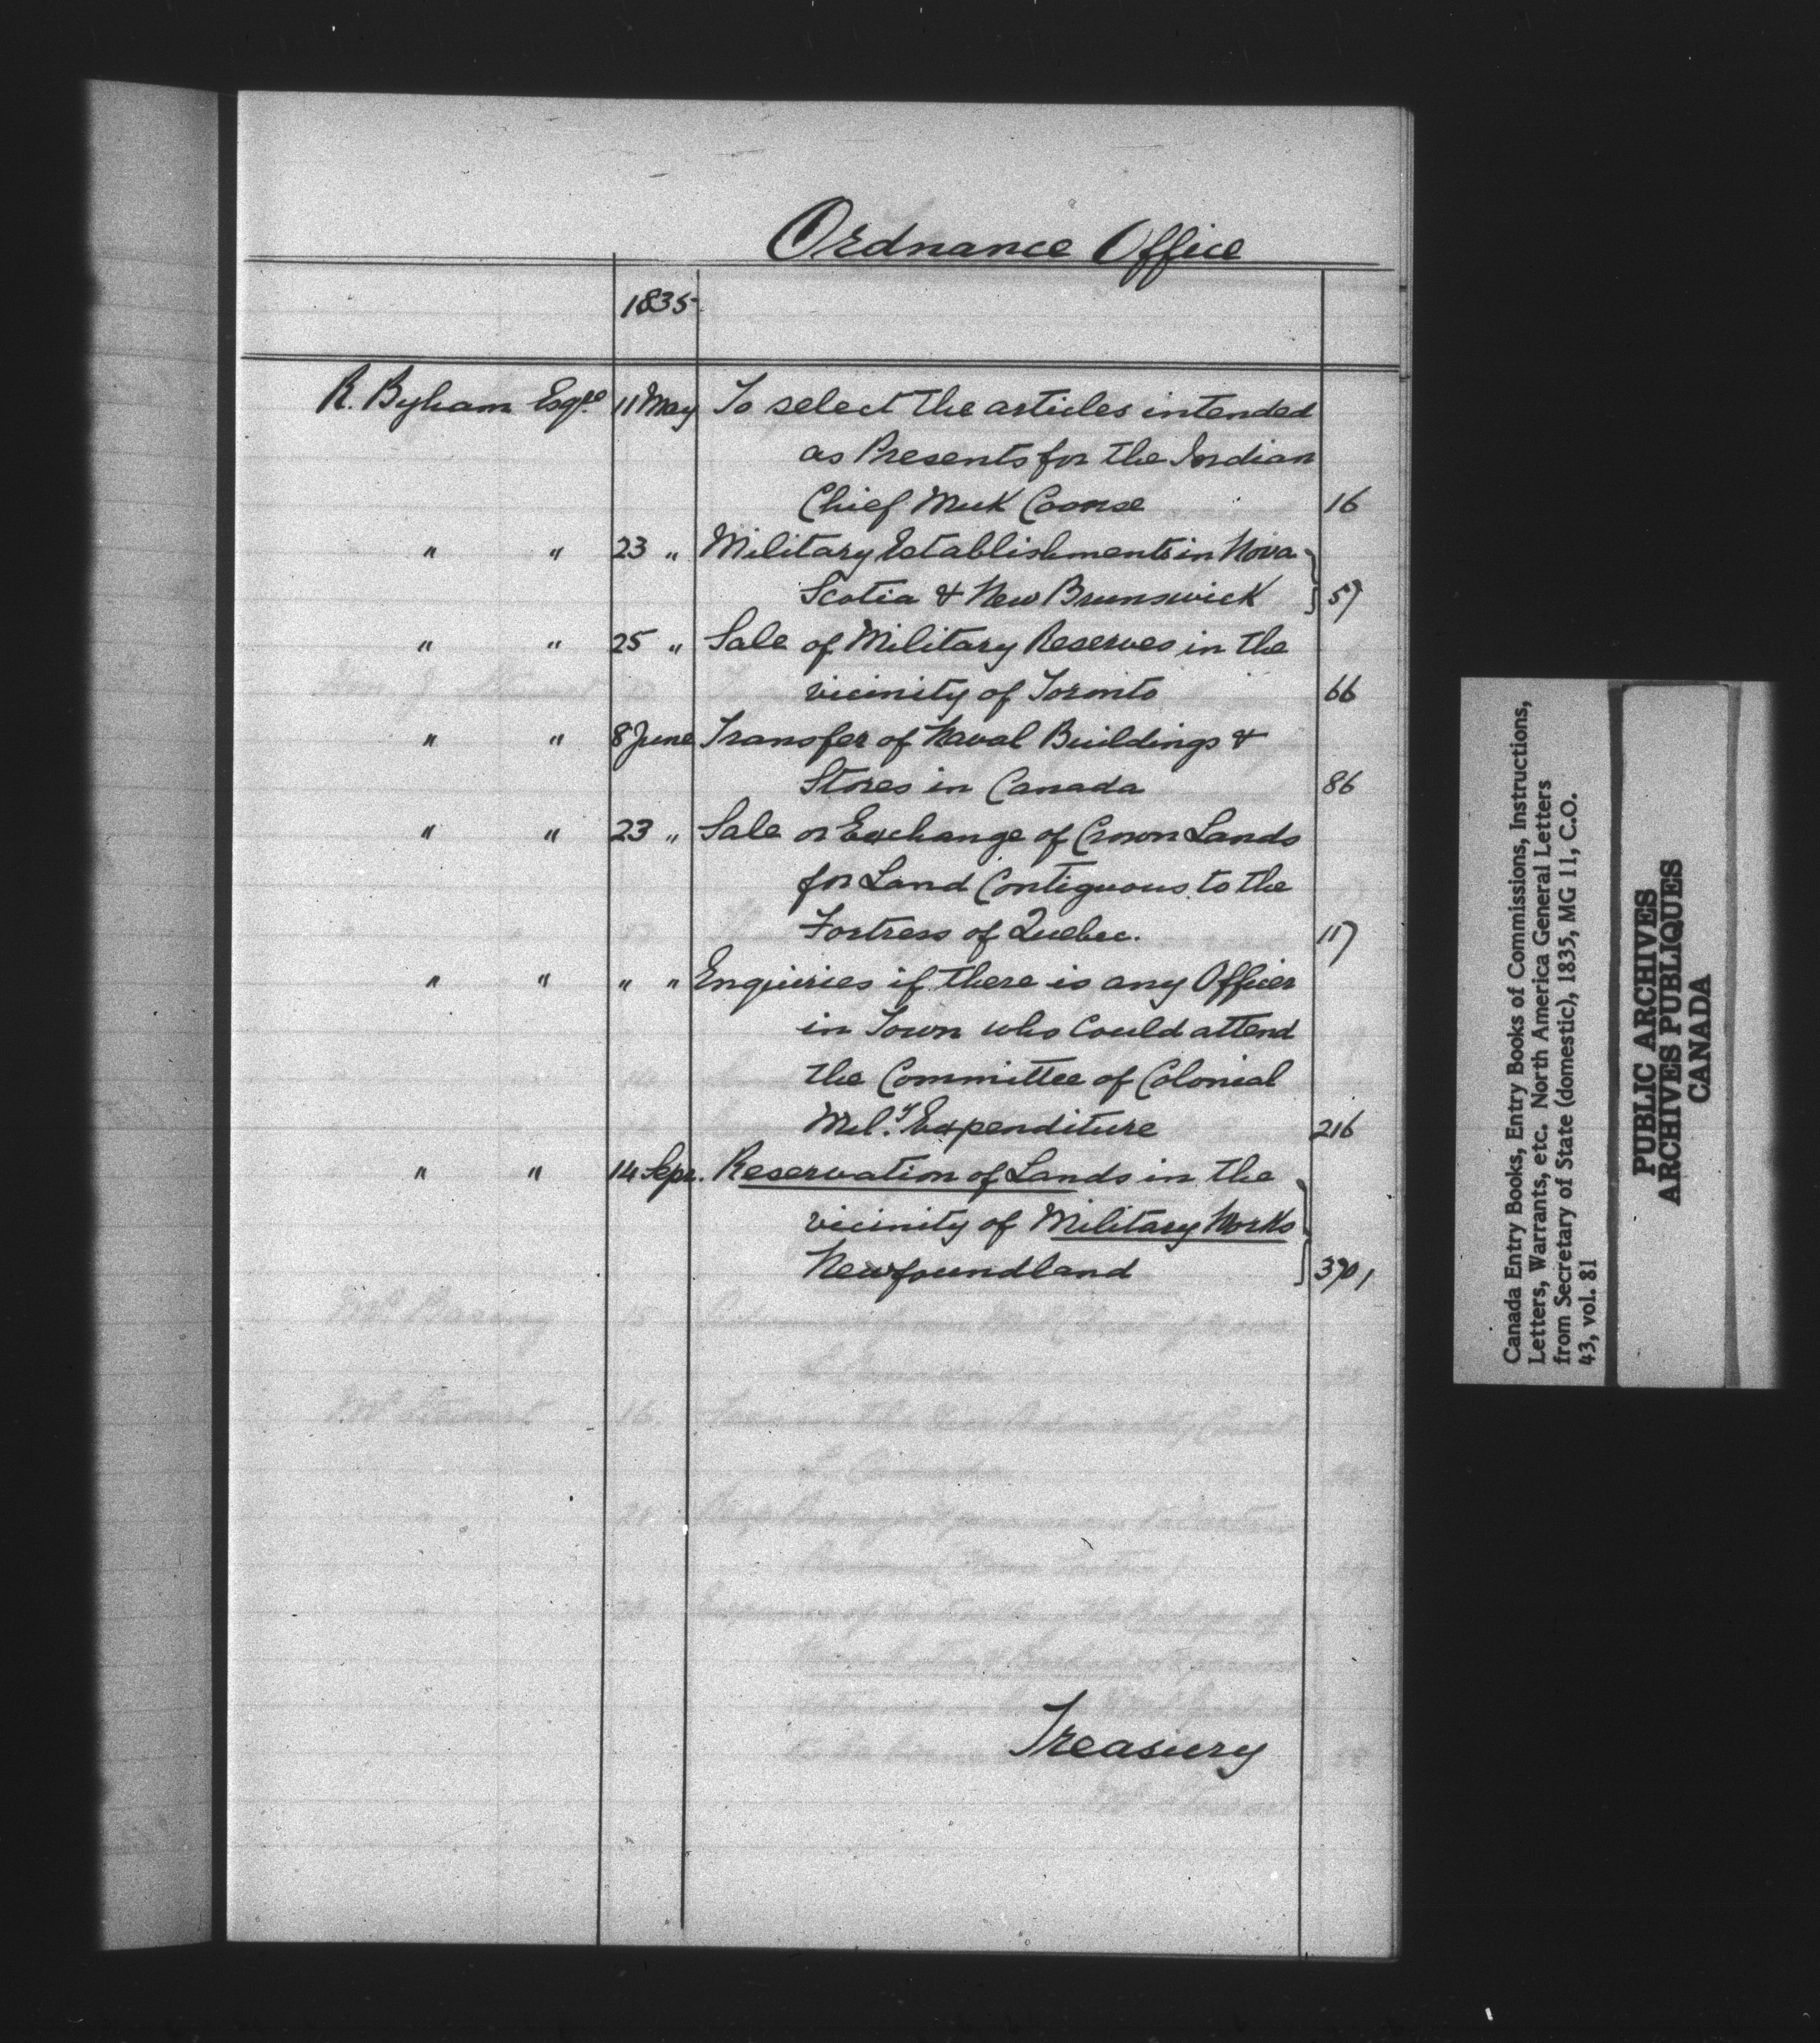 Ordnance Office
1835
R. Byham Esqre 11 May To select the articles intended
as Presents for the Indian
Chief Muk Coonce 16
" " 23 " Military Establishments in Nova
Scotia & New Brunswick 57
" " 25 " Sale of Military Reserves in the
vicinity of Toronto 66
" " 8 June Transfer of Naval Buildings &
Stores in Canada 86
" " 23 " Sale or Exchange of Crown Lands
for Land Contiguous to the
Fortress of Quebec. 117
" " " " Enquiries if there is any Officer
in Town who Could attend
the Committee of Colonial
Mily Expenditure 216
" " 14 Sepr. Reservation of Lands in the
vicinity of Military Works
Newfoundland
Treasury
Canada Entry Books, Entry Books of Commissions, Instructions,
Letters, Warrants, etc. North America General Letters
from Secretary of State (domestic), 1835, MG 11, C.O.
43, vol. 81
PUBLIC ARCHIVES
ARCHIVES PUBLIQUES
CANADA